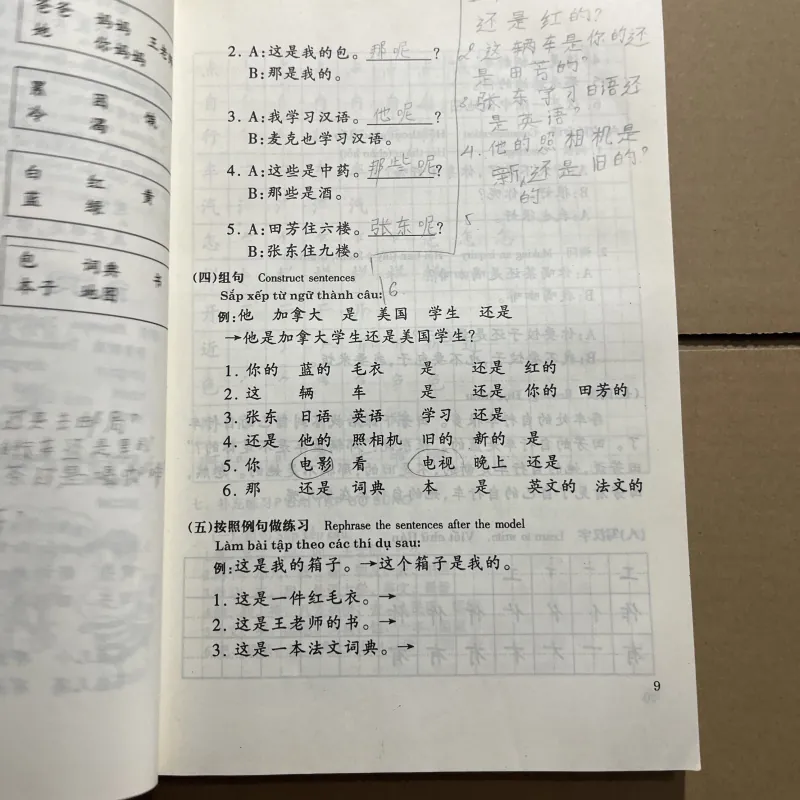 爸爸 妈妈
她 你妈妈 王老师
黑
冷
白 红 黄
蓝 绿
包 词典 书
本子 地图
2. A:这是我的包。那呢?
B:那是我的。
3. A:我学习汉语。他呢?
B:麦克也学习汉语。
4. A:这些是中药。那些呢?
B:那些是酒。
5. A:田芳住六楼。张东呢?
B:张东住九楼。
还是红的?
2. 这辆车是你的还
是田芳的?
3. 张东学习日语还
是英语?
4. 他的照相机是
新的还是旧的?
5
6
(四)组句 Construct sentences
Sắp xếp từ ngữ thành câu:
例:他 加拿大 是 美国 学生 还是
→他是加拿大学生还是美国学生?
1. 你的 蓝的 毛衣 是 还是 红的
2. 这 辆 车 是 还是 你的 田芳的
3. 张东 日语 英语 学习 还是
4. 还是 他的 照相机 旧的 新的 是
5. 你 电影 看 电视 晚上 还是
6. 那 还是 词典 本 是 英文的 法文的
(五)按照例句做练习 Rephrase the sentences after the model
Làm bài tập theo các thí dụ sau:
例:这是我的箱子。→这个箱子是我的。
1. 这是一件红毛衣。→
2. 这是王老师的书。→
3. 这是一本法文词典。→
9